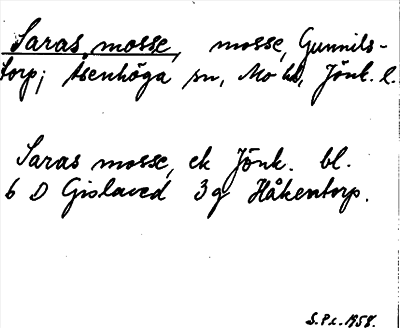 Saras mosse, mosse, Gunnils-
torp; Åsenhöga sn, Mo hd, Jönk. l.
Saras mosse, ek Jönk. bl.
6 D Gislaved 3g Håkentorp.
S.Pc. 1958.